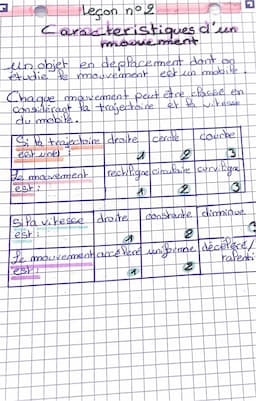 Leçon n°2
Caracteristiques d'un
mouvement
un objet en déplacement dont on
étudie le mouvement est un mobile.
Chaque mouvement peut être classé en
considérant la trajectoire et la vitesse
du mobile.
Si la trajectoire droite cercle courbe
est une : 1 2 3
Le mouvement rectiligne circulaire curviligne
est : 1 2 3
Si la vitesse droite constante diminue
est : 1 2 3
Le mouvement accéléré uniforme décéléré/
est : 1 2 ralenti